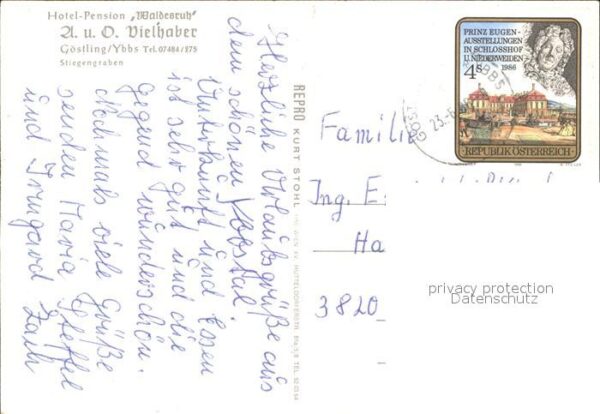 Hotel-Pension „Waldesruh"
A. u. O. Vielhaber
Göstling/Ybbs Tel. 07484/275
Stiegengraben
Herzliche Urlaubsgrüße aus
dem schönen Ybbstal.
Unterkunft und Essen
ist sehr gut und die
Gegend wunderschön.
Nochmals viele Grüße
senden Maria
und Irmgard
REPRO KURT STOHL
PRINZ EUGEN-
AUSSTELLUNGEN
IN SCHLOSSHOF
U. NIEDERWEIDEN
1986
4 S
REPUBLIK ÖSTERREICH
Familie
Ing. E
Ha
3820
privacy protection
Datenschutz